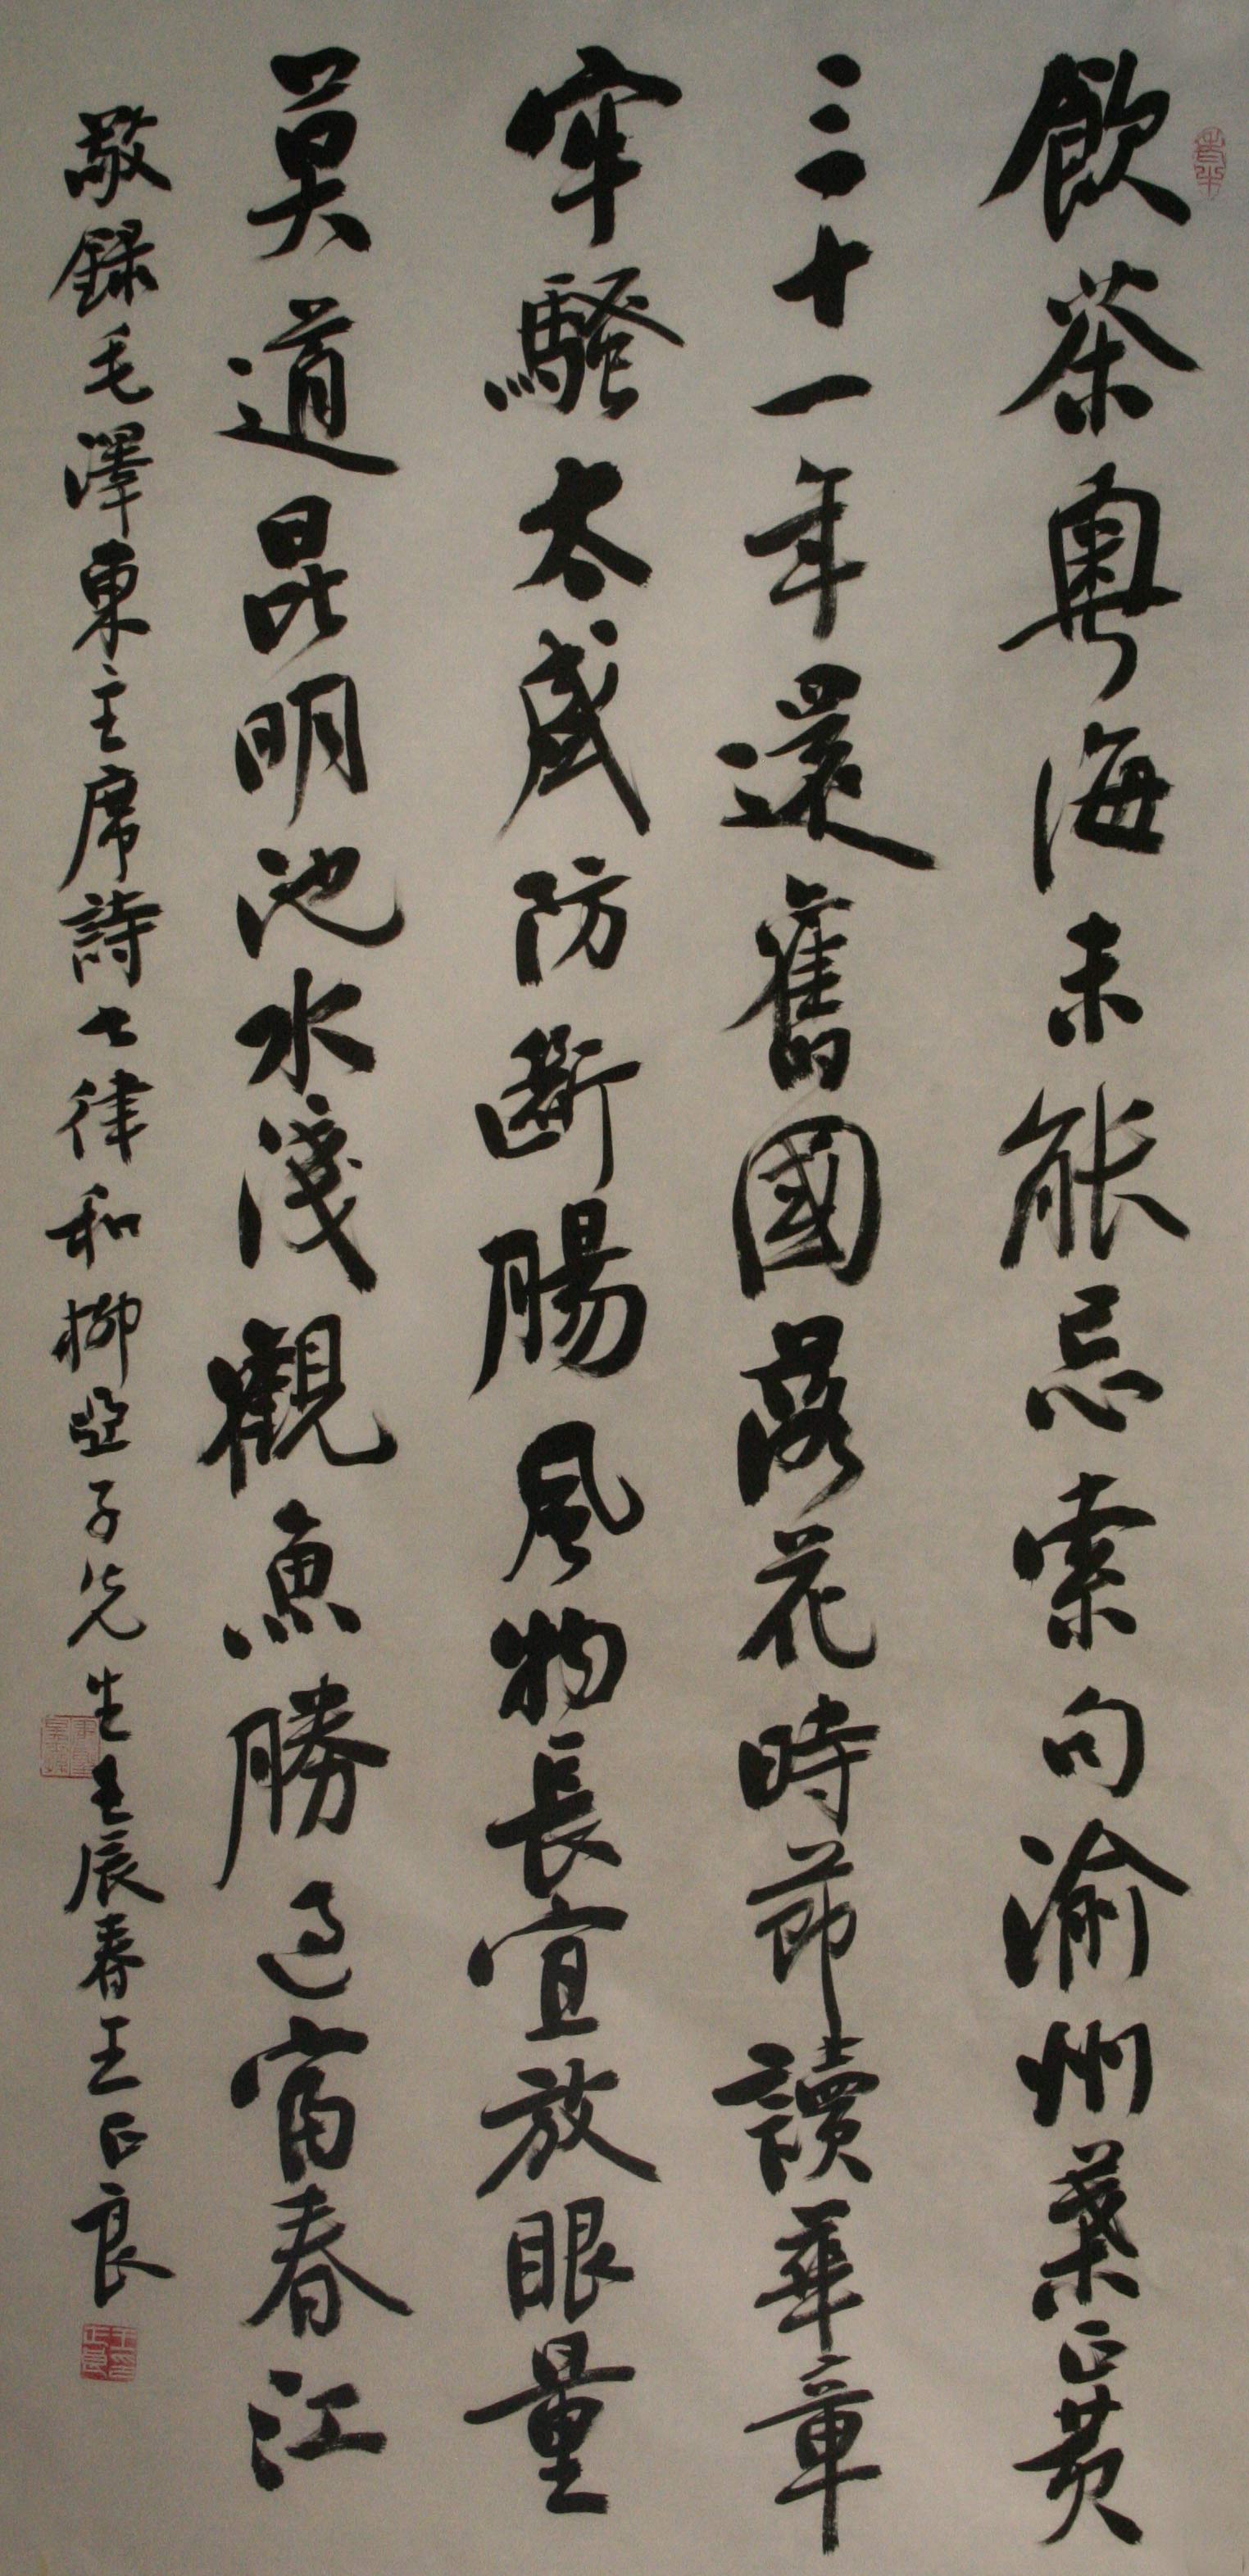 飲茶粵海未能忌索句渝州葉正黃
三十一年還舊國落花時節讀華章
牢騷太盛防斷腸風物長宜放眼量
莫道昆明池水淺觀魚勝過富春江
敬錄毛澤東主席詩七律和柳亞子先生壬辰春王正良